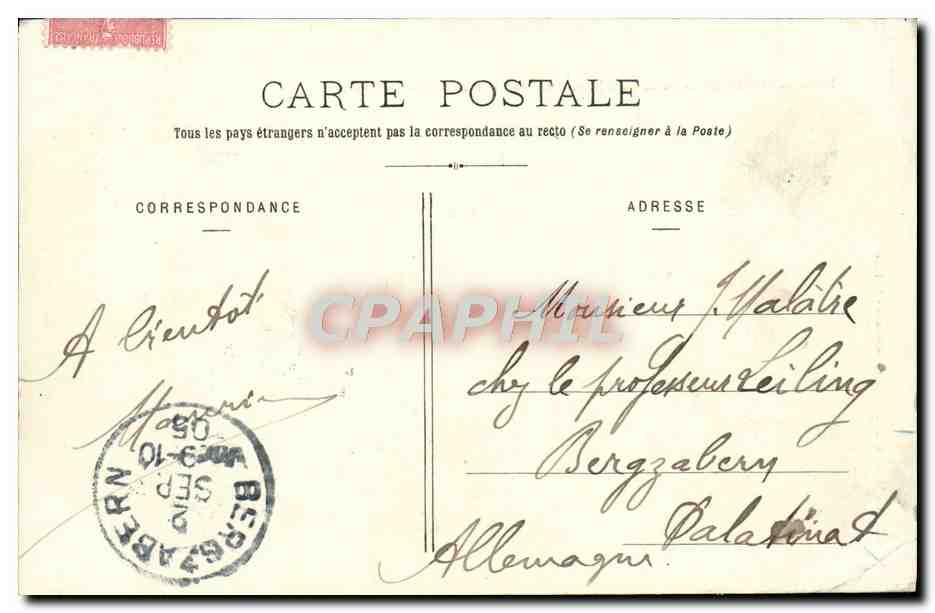 CARTE POSTALE
Tous les pays étrangers n'acceptent pas la correspondance au recto (Se renseigner à la Poste)
CORRESPONDANCE
ADRESSE
A bientôt
Monsieur J. Malâtre
chez le professeur Leiling
Bergzabern
Palatinat
Allemagne
BERGZABERN
12
SEP
9-10
05
CPAPHIL